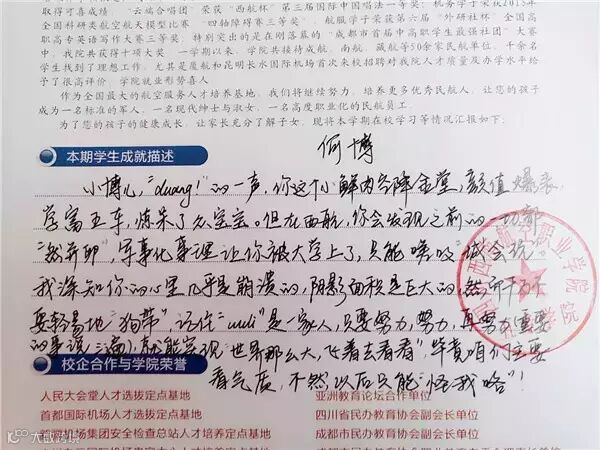 取得可喜成绩 “云端合唱团”荣获“西航杯”第三届国际中国唱法一等奖；机务学子荣获2015年
全国科研类航空航天模型比赛 “四轴障碍赛三等奖”、航服学子荣获第六届“外研社杯”全国高
职高专英语写作大赛三等奖。特别突出的是在刚落幕的“成都市首届中高职学生最强社团”大赛
中，我院共获得十项大奖 一学期以来，学院共接待成航、南航、藏航等50余家民航单位，千余名
学生找到了理想工作，尤其是厦航和昆明长水国际机场首次来校招聘对我院人才质量及办学水平给
予了很高评价 学院就业形势喜人
作为全国最大的航空服务人才培养基地，我们将继续努力，培养更多优秀民航人，让您的孩子
成为一名标准的军人，一名现代绅士与淑女，一名高度职业化的民航员工。
为了您的孩子的健康成长，让家长充分了解子女，现将本学期在校学习等情况汇报如下：
本期学生成就描述
何博
小博儿，“duang！”的一声，你这个小鲜肉空降金堂，颜值爆表，
学富五车，炼呆了众宝宝。但在西航，你会发现之前的一切都
“然并卵”，军事化管理让你被大学上了，只能“嘤咬”城会玩。
我深知你的心里几乎是崩溃的，阴影面积是巨大的，然所千万不
要轻易地“狗带”记住“wuli”是一家人，只要努力，努力，再努力（重要
的事说三遍），就能实现“世界那么大，飞着去看看”毕竟咱们主要
看气质，不然以后只能“怪我咯”！
校企合作与学院荣誉
人民大会堂人才选拔定点基地
亚洲教育论坛合作单位
首都国际机场人才选拔定点基地
四川省民办教育协会副会长单位
首都机场集团安全检查总站人才培养定点基地
成都市民办教育协会副会长单位
大歌跨境